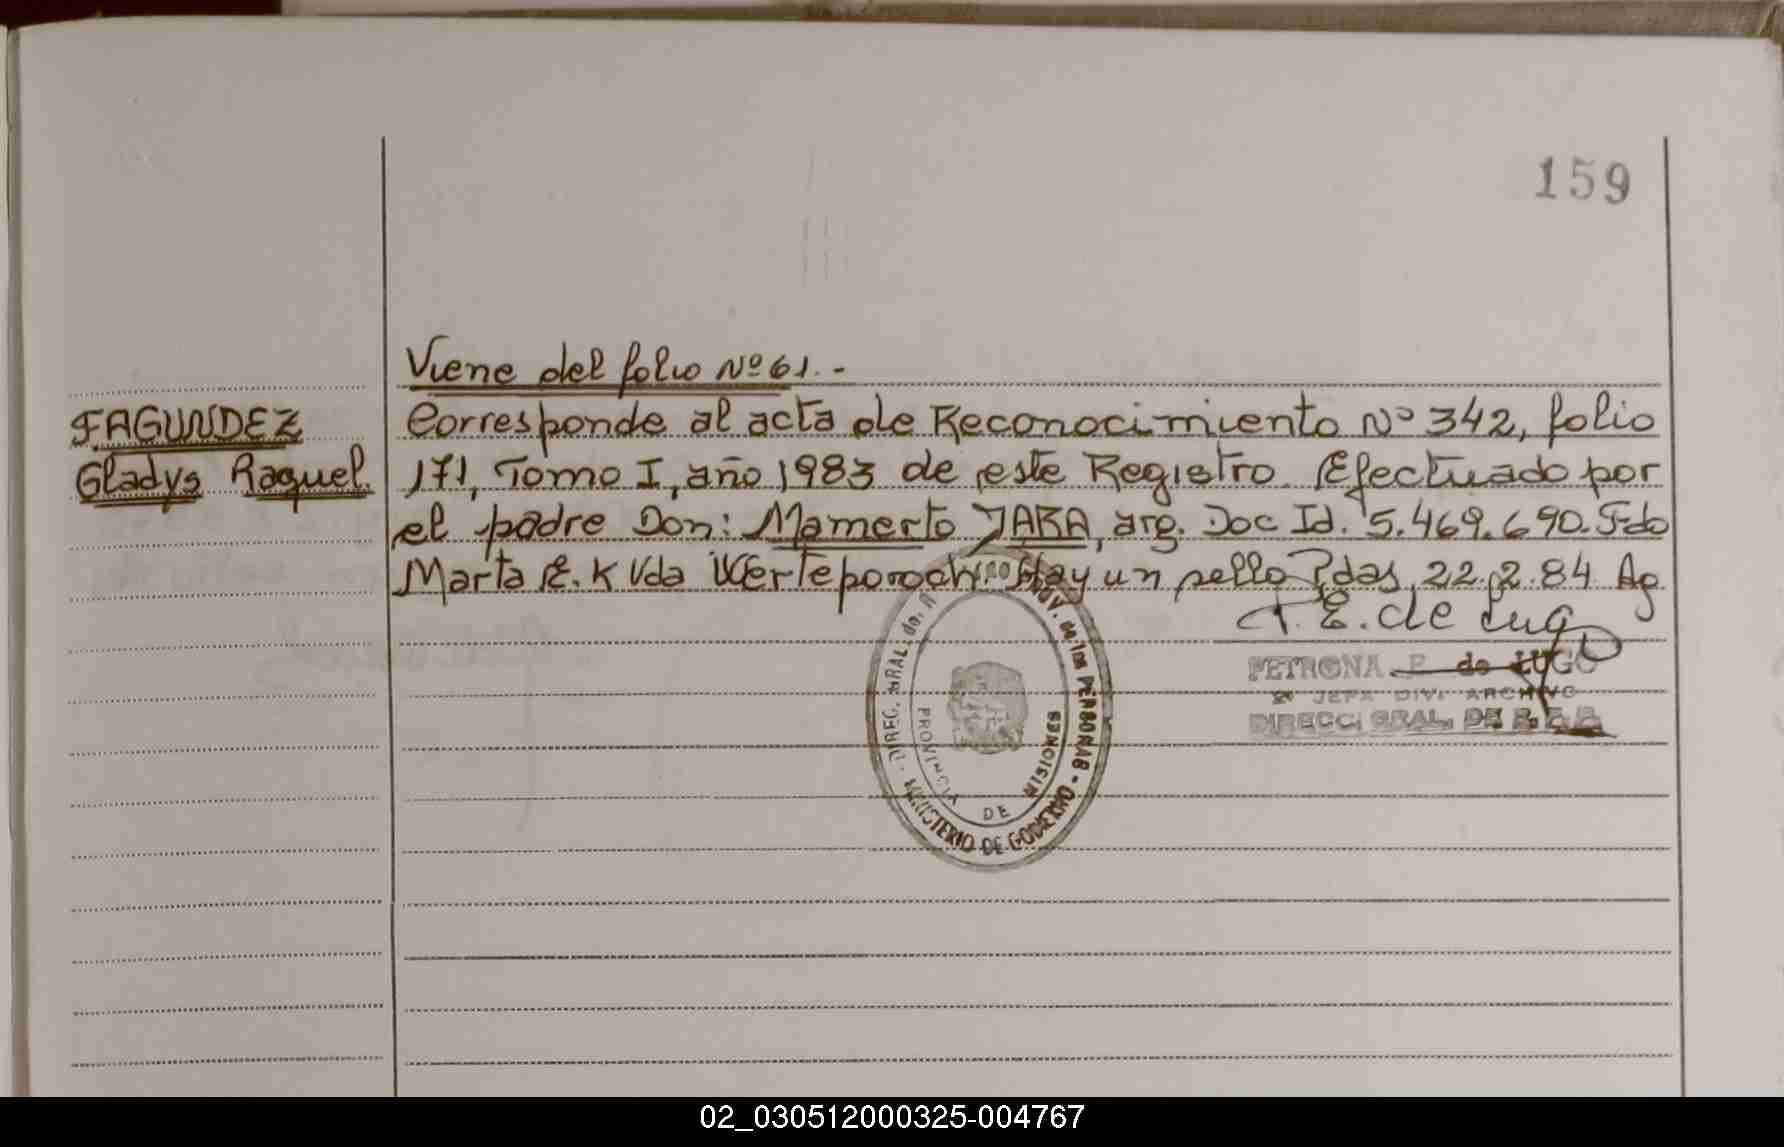 159
Viene del folio Nº 61.-
FAGUNDEZ
Gladys Raquel.
Corresponde al acta de Reconocimiento Nº 342, folio
171, Tomo I, año 1983 de este Registro. Efectuado por
el padre Don: Mamerto JARA, arg. Doc Id. 5.469.690. Fdo
Marta E. K Vda Hay un sello Pdas, 22.2.84 Ag
P. E. de Lugo
PETRONA E. de LUGO
JEFA DIV. ARCHIVO
DIRECC. GRAL. DE R. P. P.
DIREC. GRAL. de los PERSONAS - MINISTERIO DE GOBIERNO -
PROVINCIA DE MISIONES
02_030512000325-004767